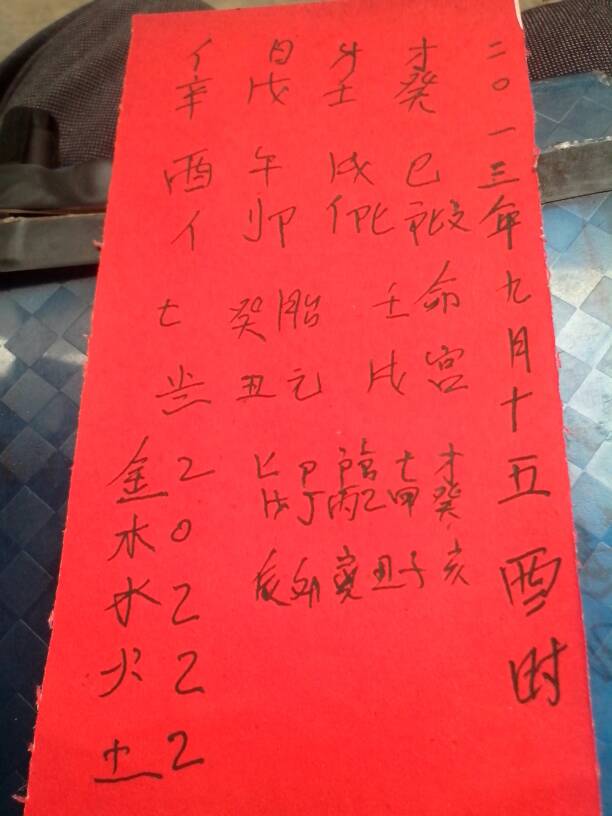 二〇一三年九月十五酉时
才 癸 巳
壬 戌
日 戊 午 卯
亻 辛 酉 亻
命宫 壬戌
胎元 癸丑
七
才 癸 亥
七 甲 子
乙 丑
丙 寅
丁 卯
戊 辰
金2
木0
水2
火2
土2